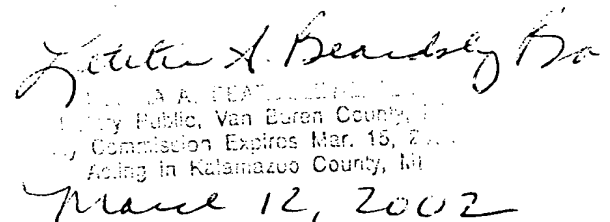 Letitia A. Beardsley
A.
Public, Van Buren County,
Commission Expires Mar. 15,
Acting in Kalamazoo County, MI
March 12, 2002